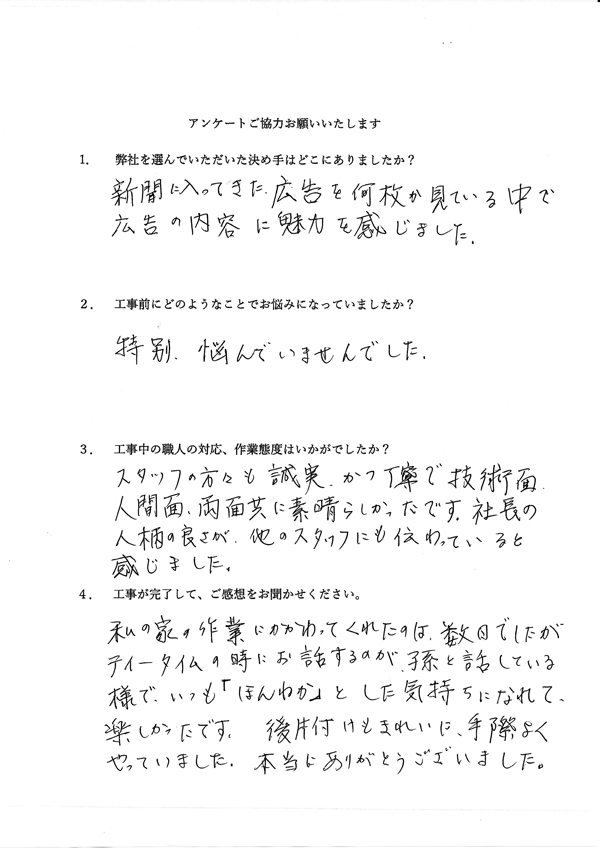 アンケートご協力お願いいたします
1. 弊社を選んでいただいた決め手はどこにありましたか?
新聞に入ってきた、広告を何枚か見ている中で
広告の内容に魅力を感じました。
2. 工事前にどのようなことでお悩みになっていましたか?
特別、悩んでいませんでした。
3. 工事中の職人の対応、作業態度はいかがでしたか?
スタッフの方々も誠実、かつ丁寧で技術面、
人間面、両面共に素晴らしかったです。社長の
人柄の良さが、他のスタッフにも伝わっていると
感じました。
4. 工事が完了して、ご感想をお聞かせください。
私の家の作業にかかわってくれたのは、数日でしたが
ティータイムの時にお話するのが、孫と話している
様で、いつも「ほんわか」とした気持ちになれて、
楽しかったです。 後片付けもきれいに、手際よく
やっていました。本当にありがとうございました。